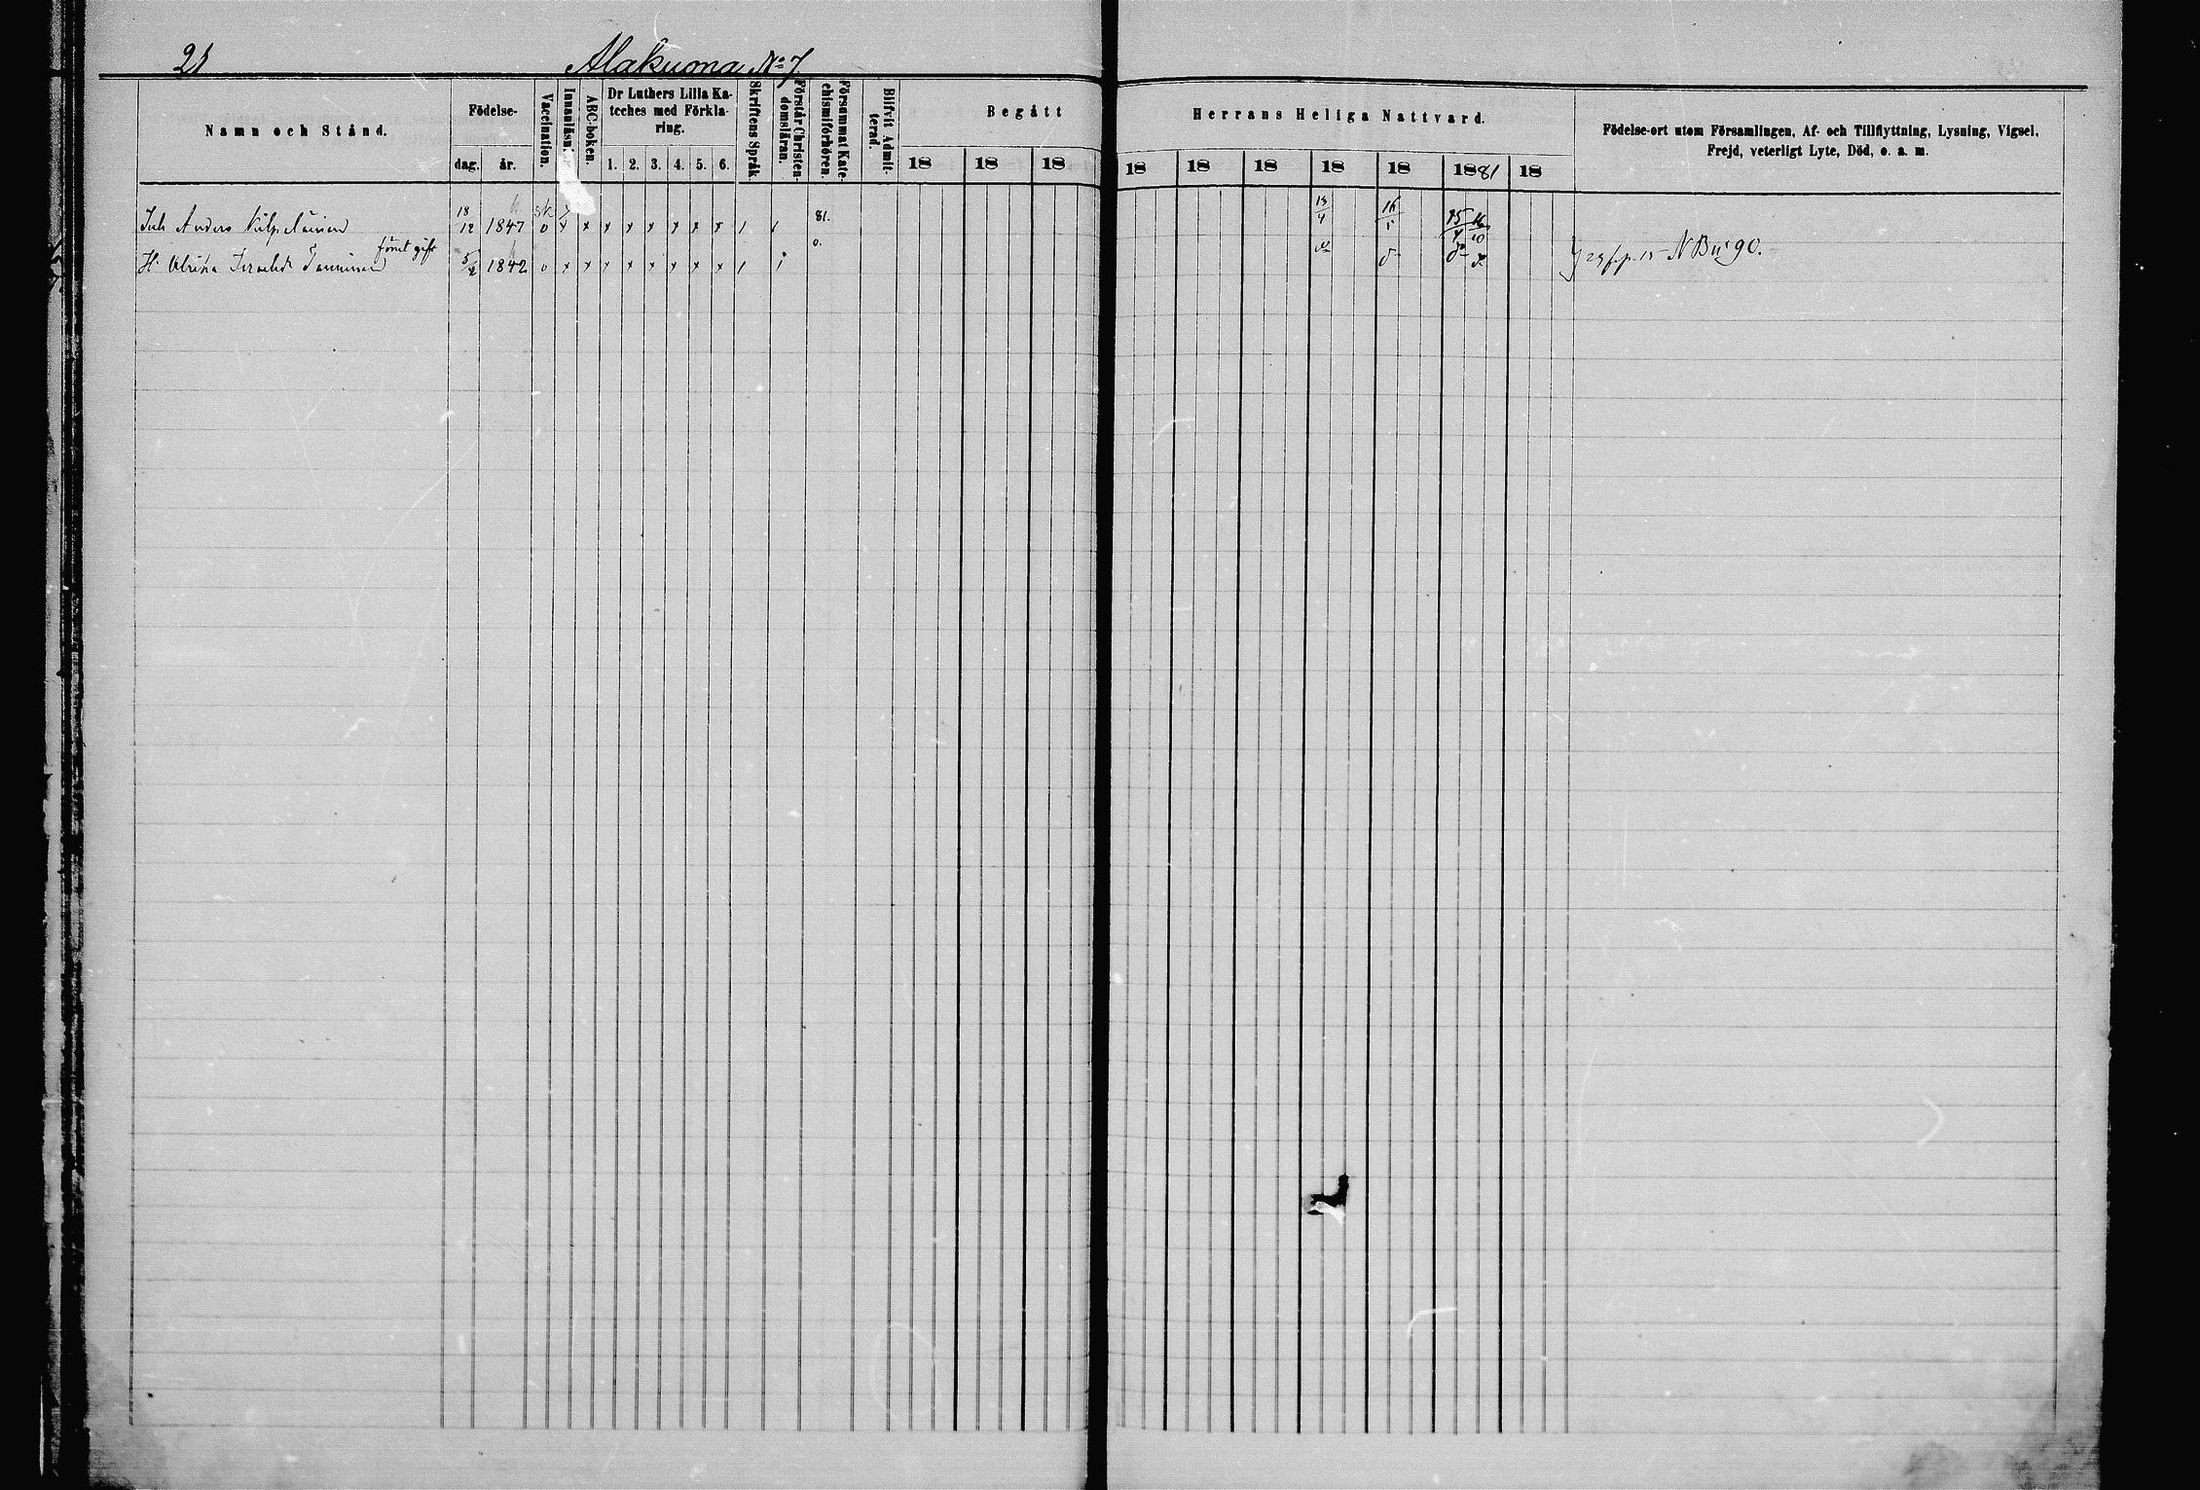 21
Alakuona No 7.
Namn och Stånd.
Födelse-
dag.
år.
Vaccination.
Innanläsn.
ABC-boken.
Dr Luthers Lilla Ka-
teches med Förkla-
ring.
1. 2. 3. 4. 5. 6.
Skriftens Språk.
Förstår Christen-
domsläran.
Försummat Kate-
chismiförhören.
Blifvit Admit-
terad.
Begått
18 18 18
Herrans Heliga Nattvard.
18 18 18 18 18 1881 18
Födelse-ort utom Församlingen, Af- och Tillflyttning, Lysning, Vigsel,
Frejd, veterligt Lyte, Död, o. a. m.
Anders Kilpeläinen 18/12 1847 o x x x x x x x x 81.
förut gift
H. Ulrika 5/2 1842 o x x x x x x x x o.